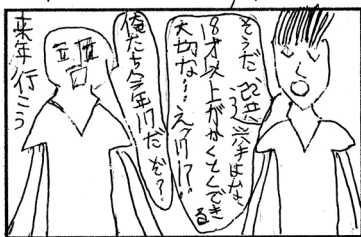 そうだ選挙はな
18才以上がかくとくでき
る
大切な…えっ17!?
俺たち今年17だぞ?
来年行こう